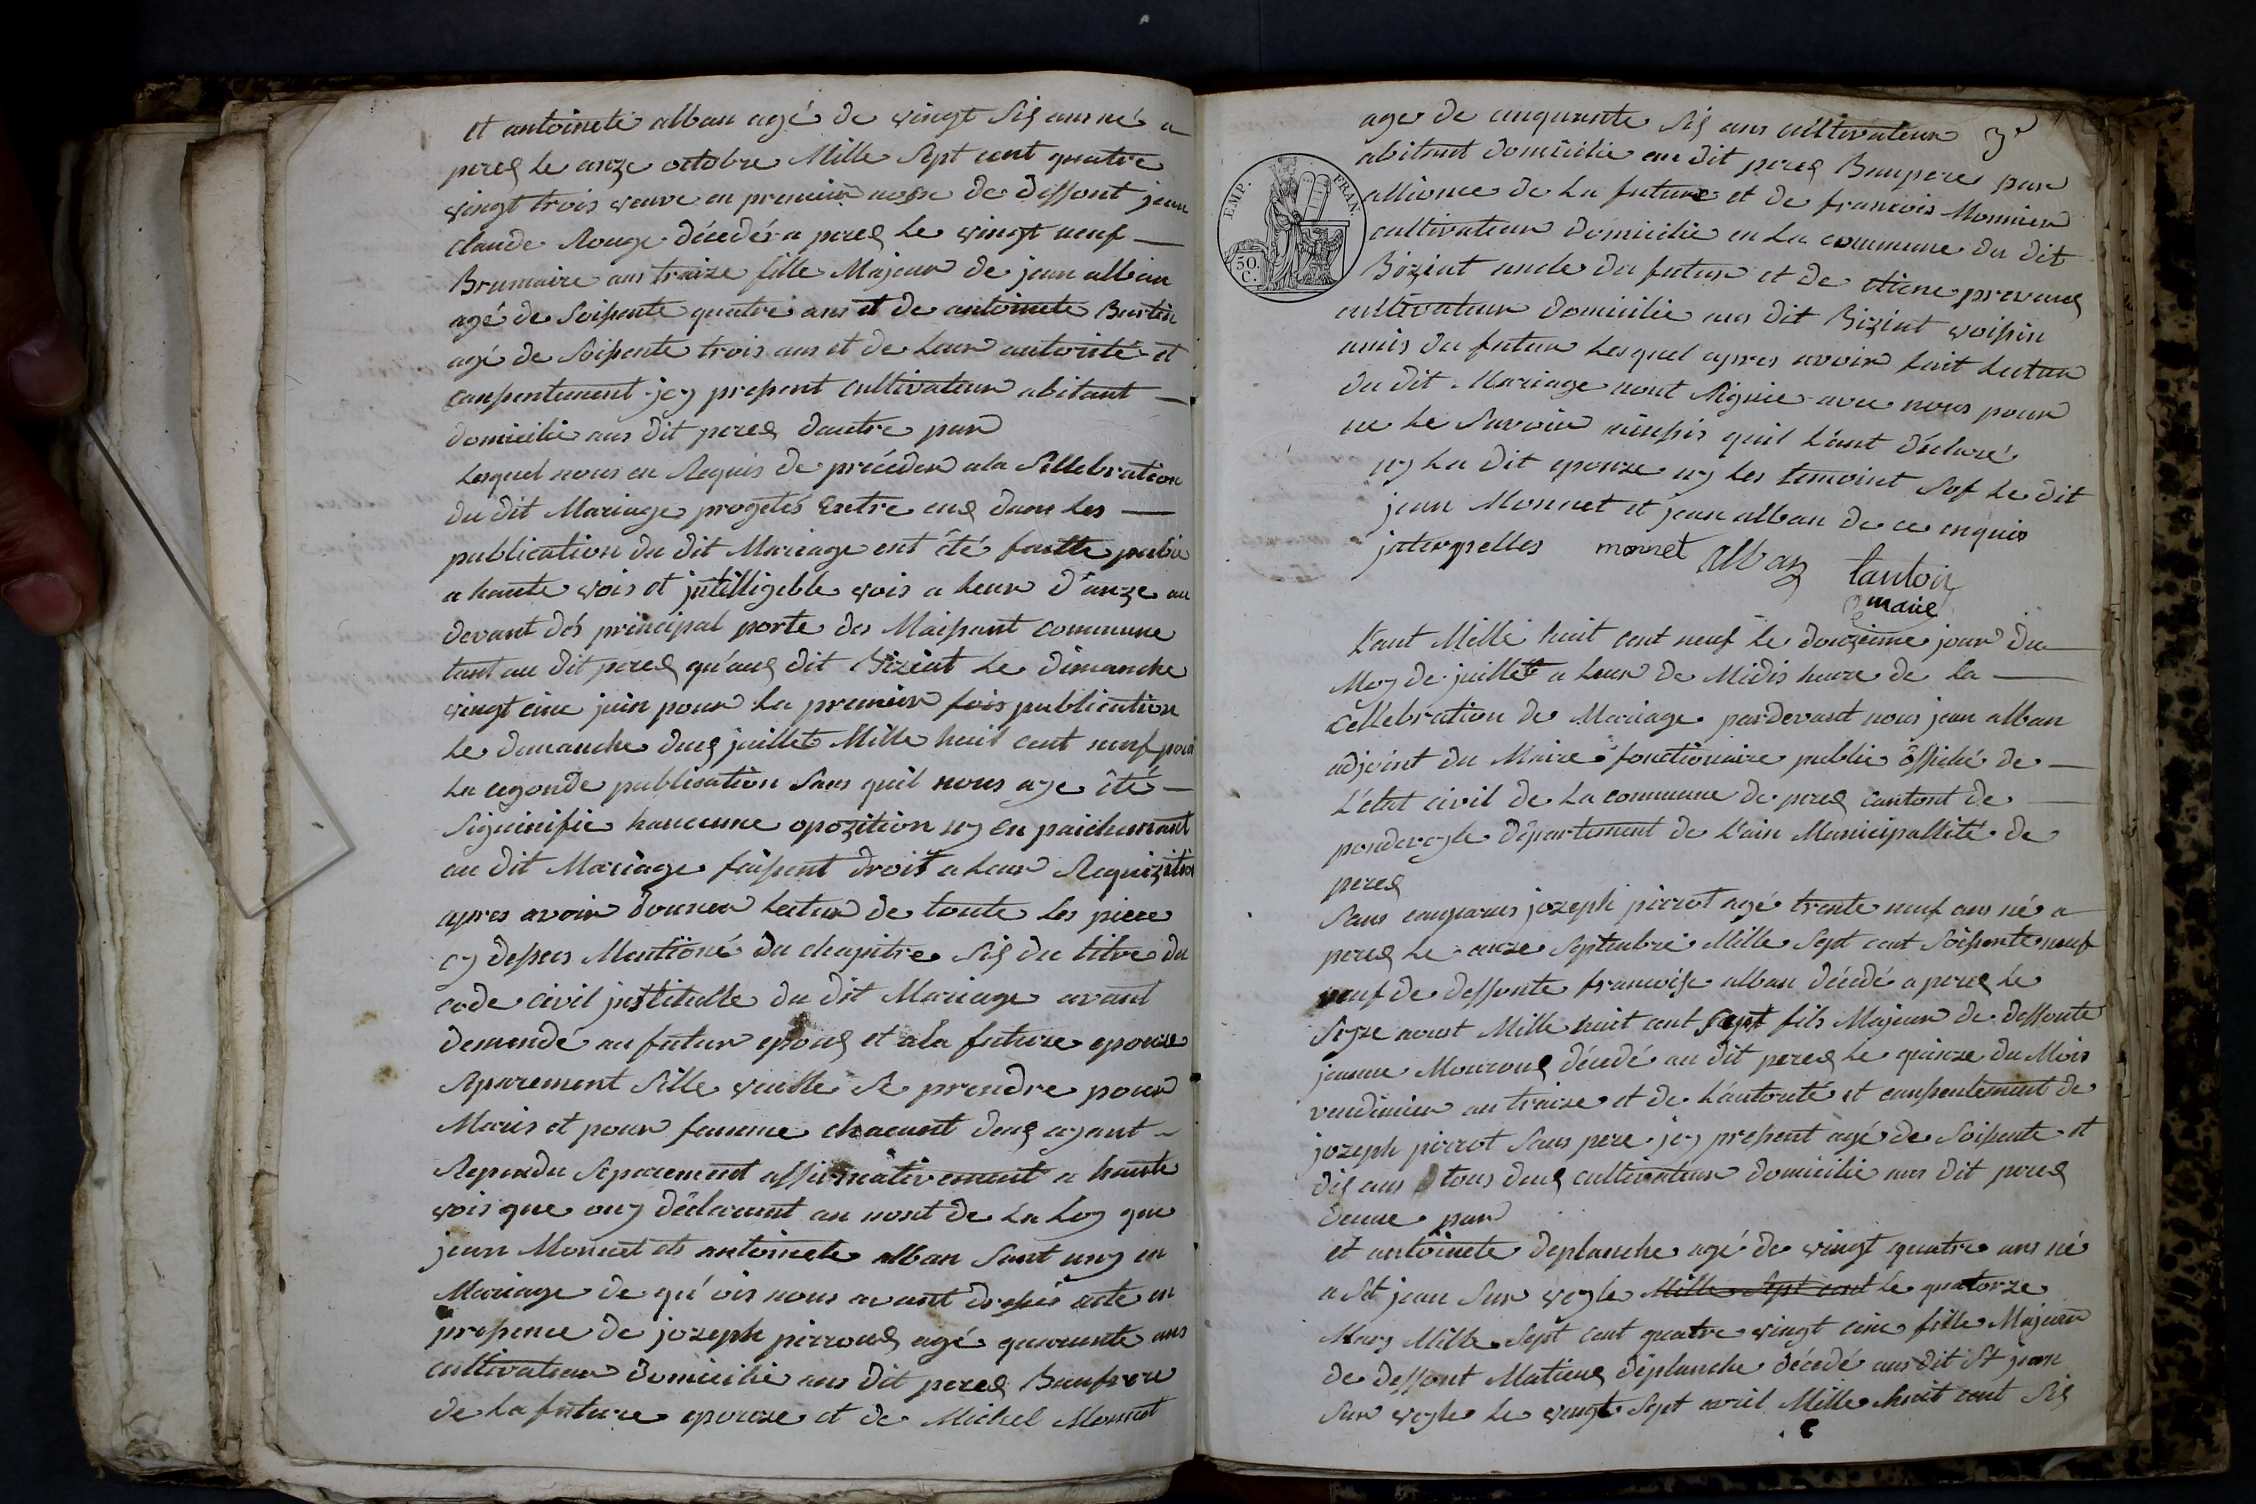 et antoinete alban agé de vingt six ans né a
perex le onze octobre Mille Sept cent quatre
vingt trois veuve en premiere nosse de deffont jean
claude Rouge décedé a perex le vingt neuf
Brumaire ans traize fille Majeur de jean alban
agé de Soissente quatre ans et de antoinete Burtin
agé de Soissente trois ans et de Leur autorité et
conssentement jcy pressent cultivateur abitant
domicilié aus dit perex dautre par
Lesquel nous on Requis de précéder a la Sellebration
du dit Mariage progetés Entre eux dont les
publication du dit Mariage ont été faitte
a haute vois et jntilligeble vois a heur d'onze au
devant dés principal porte des Maissont commune
tant au dit perex qu'aux dit Biziat le dimanche
vingt cinc juin pour La premier fois publication
Le dimanche deux juillet Mille huit cent neuf pour
La cegonde publication Sans quil nous aye été
Siginifie haucunne opozition ny en paichemant
au dit Mariage faissent droit a leur Requizition
apres avoir donner Lectur de toute Les piece
cy dessus Mentioné du chapitre Six du titre du
code civil jnstitulle du dit Mariage avant
demendé au futur epoux et a la future epouze
Separement Sille veulle Se prendre pour
Maris et pour femme chacunt deux ayant
Repondu Separement affirmativement a haute
vois que ouy déclarent au nont de La Loy que
jean Monnet et antoinete alban Sont uny en
Mariage de qu'ois nous avont dressé acte en
pressence de jozeph pirroux agé quarente ans
cultivateur domicilié aus dit perex Baufrere
de La future epouze et de Michel Monnet
age de cinquante Six ans cultivateur
abitant domicilié au dit perex Baupere par
allience de La future et de francois Monnier
cultivateur domicilié en La commune du dit
Biziat oncle du futur et de etiene preveux
cultivateur domicilié aus dit Biziat voissin
amis du futur Lesquel apres avoir fait Lectur
du dit Mariage nont Signie avec nous pour
ne Le Savoir ainssis quil L'ont déclaré
ny La dit epouze ny Les temoint Sof Le dit
jean Monnet et jean alban de ce enquis
jnterpelles monnet Alban
maire
EMP. FRAN.
50 C.
L'ant Mille huit cent neuf le douzieme jour du
Moy de juillett a heur de Midis heure de La
Cellebration de Mariage pardevant nous jean alban
adjoint du Maire fonctionaire public offisié de
L'etat civil de La commune de perex cantont de
pondeveyle département de L'ain Municipallité de
perex
Sans conparus jozeph pirrot agé trente neuf ans né a
perex Le onze Septembre Mille Sept cent Soissente neuf
veuf de deffonte francoise alban décedé a perex Le
Seize aoust Mille huit cent Sept fils Majeur de deffonte
jeanne Mouroux décedé au dit perex Le quinze du Mois
vendimier an traize et de L'autorité et conssentement de
jozeph pirrot Sans pere jcy pressent agé de Soissente et
dix ans tous deux cultivateur domicilié aus dit perex
Deune par
et antoinete deplanche agé de vingt quatre ans né
a St jean Sur veyle Mille Sept cent Le quatorze
Mars Mille Sept cent quatre vingt cinc fille Majeur
de deffont Matieux déplanche décedé aus dit St jean
Sur veyle Le vingt Sept avril Mille huit cent Six